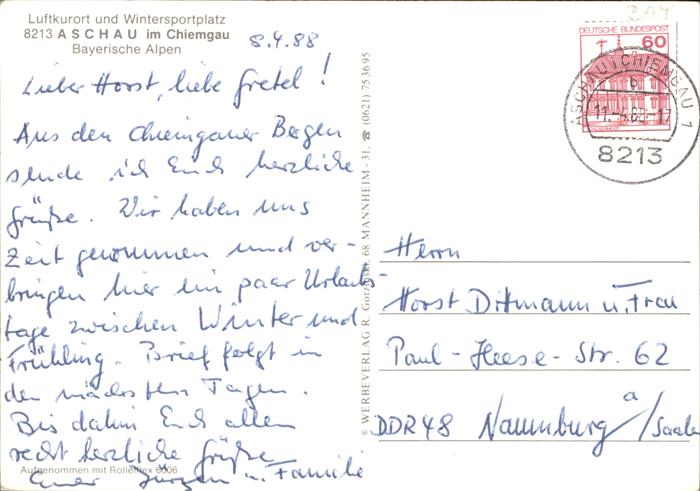 Luftkurort und Wintersportplatz
8213 ASCHAU im Chiemgau
Bayerische Alpen
8.4.88
Lieber Horst, liebe Gretel!
Aus den Chiemgauer Bergen
sende ich Euch herzliche
Grüße. Wir haben uns
Zeit genommen und ver-
bringen hier ein paar Urlaubs-
tage zwischen Winter und
Frühling. Brief folgt in
den nächsten Tagen.
Bis dahin Euch allen
recht herzliche Grüße
Euer Jürgen u. Familie
Aufgenommen mit Rolleiflex 6006
© WERBEVERLAG R. 68 MANNHEIM-31, ☎ (0621) 753695
DEUTSCHE BUNDESPOST
60
ASCHAU I CHIEMGAU 1
b
11.-4.88-17
8213
Herrn
Horst Dittmann u. Frau
Paul-Heese-Str. 62
DDR 48 Naumburg a/Saale